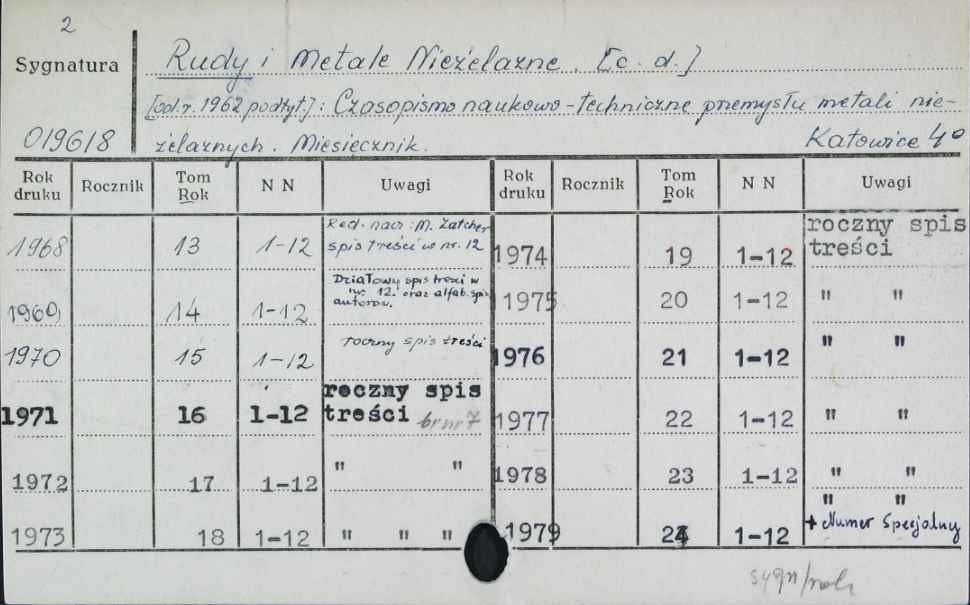 2
Sygnatura Rudy i Metale Nieżelazne. [c. d.]
[od r. 1962 podtyt.]: Czasopismo naukowo-techniczne przemysłu metali nie-
019618 żelaznych. Miesięcznik. Katowice 4°
Rok druku Rocznik Tom Rok N N Uwagi Rok druku Rocznik Tom Rok N N Uwagi
1968 13 1-12 Red. nacz.: M. Zatcher
spis treści w nr. 12
1969 14 1-12 Działowy spis treści w
nr. 12. oraz alfab. spis
autorów.
1970 15 1-12 roczny spis treści
1971 16 1-12 roczny spis
treści br nr 7
1972 17 1-12 " "
1973 18 1-12 " " "
1974 19 1-12 roczny spis
treści
1975 20 1-12 " "
1976 21 1-12 " "
1977 22 1-12 " "
1978 23 1-12 " "
1979 24 1-12 " "
+ Numer Specjalny